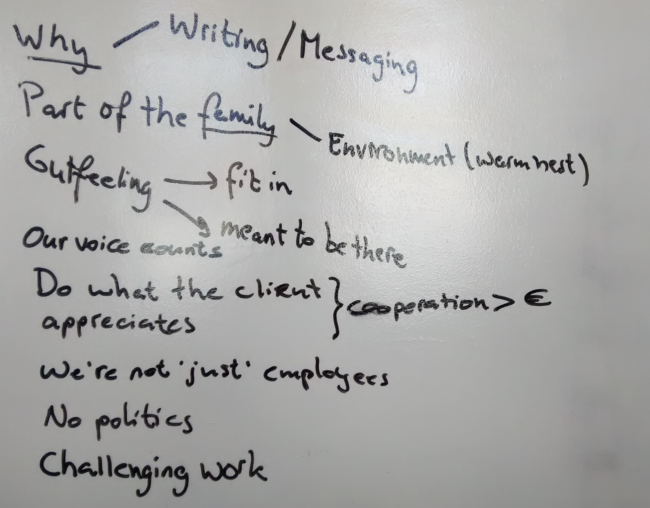 Why – Writing / Messaging
Part of the family \ Environment (warm nest)
Gutfeeling → fit in
↘ meant to be there
Our voice counts
Do what the client } cooperation > €
appreciates
We're not 'just' employees
No politics
Challenging work